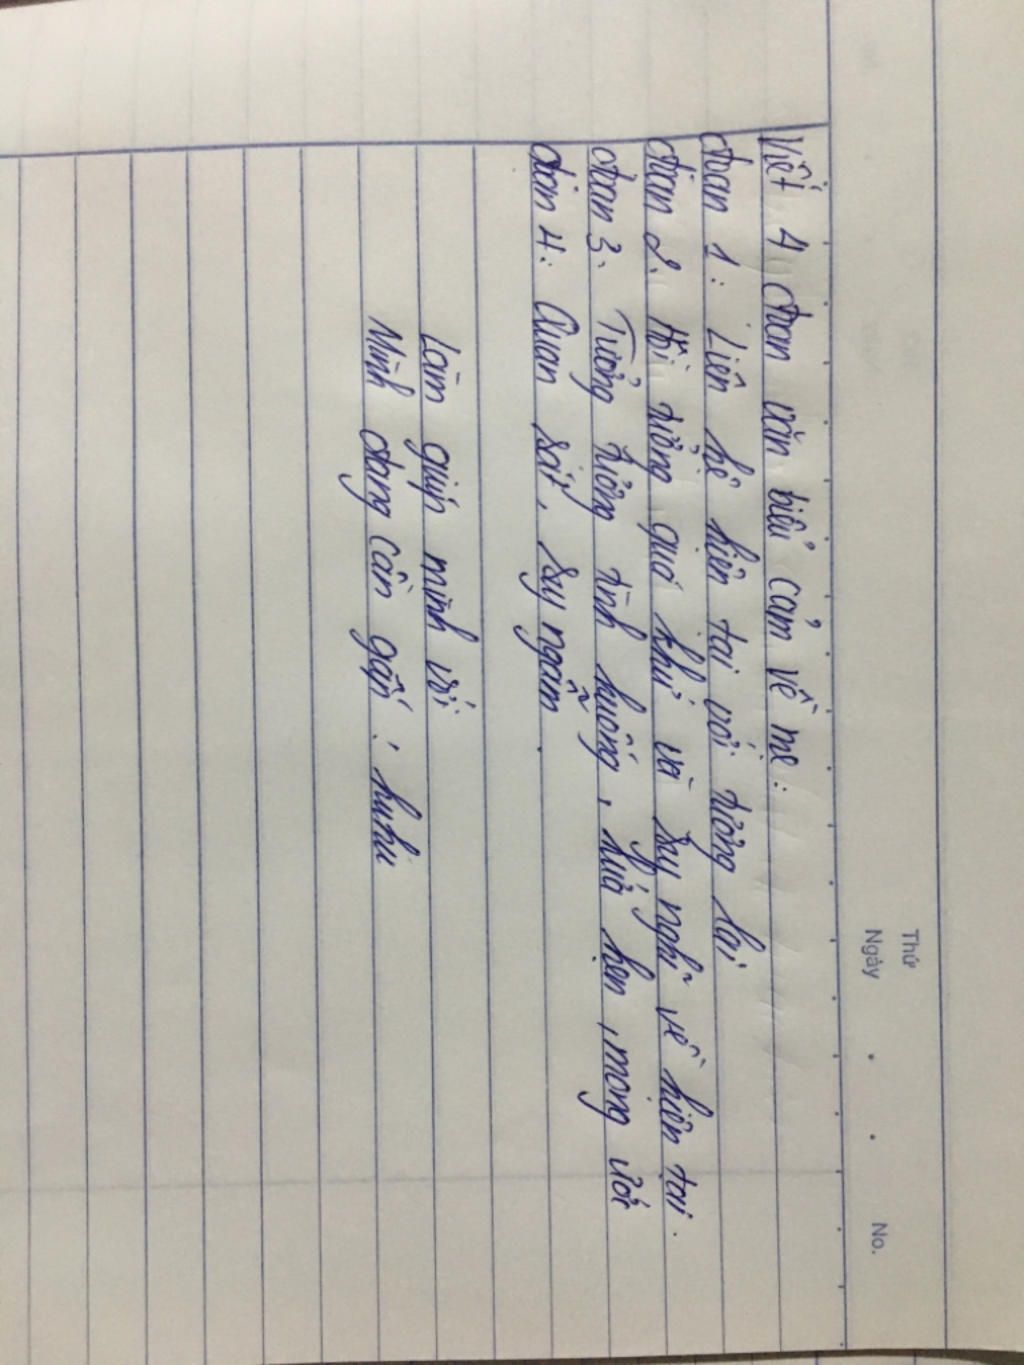 Thứ
Ngày . . No.
Viết 4 đoạn văn biểu cảm về mẹ:
đoạn 1: Liên hệ hiện tại với tương lai
đoạn 2: Hồi tưởng quá khứ và suy nghĩ về hiện tại.
đoạn 3: Tưởng tượng tình huống, hứa hẹn, mong ước
đoạn 4: Quan sát, suy ngẫm.
Làm giúp mình với
Mình đang cần gấp! huhu